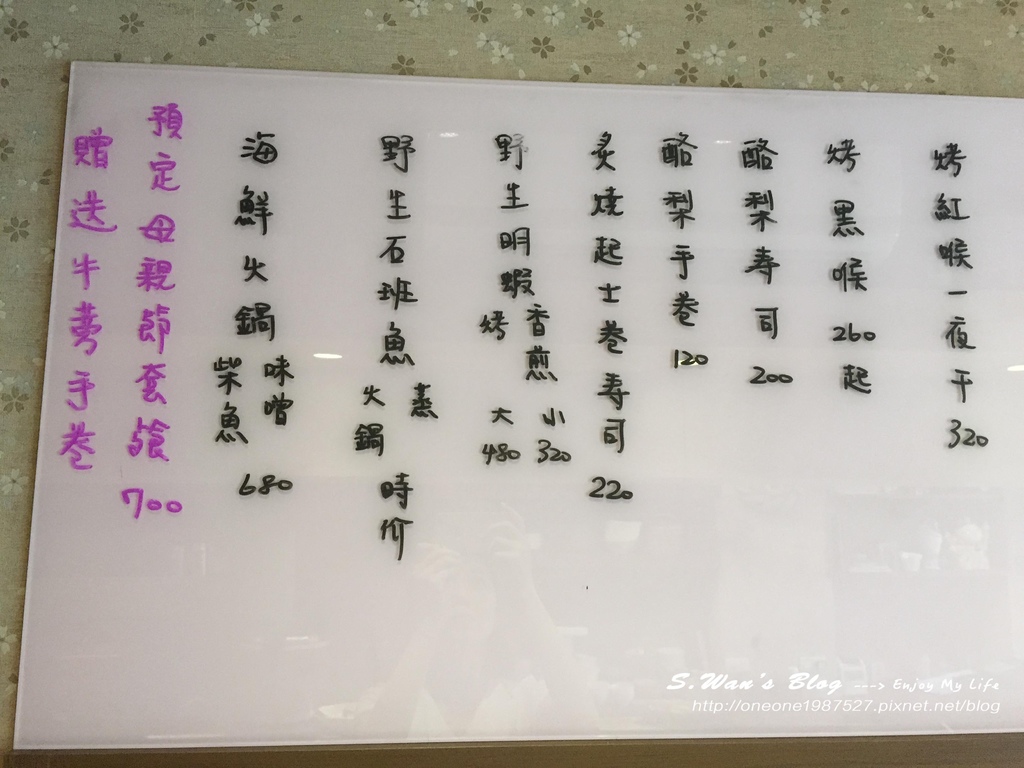 烤紅喉一夜干 320
烤黑喉 260起
酪梨壽司 200
酪梨手卷 120
炙燒起士卷壽司 220
野生明蝦 香煎 烤 小320 大480
野生石班魚 蒸 火鍋 時价
海鮮火鍋 味噌 柴魚 680
預定母親節套餐700
贈送牛蒡手卷
S.Wan's Blog ---> Enjoy My Life
http://oneone1987527.pixnet.net/blog